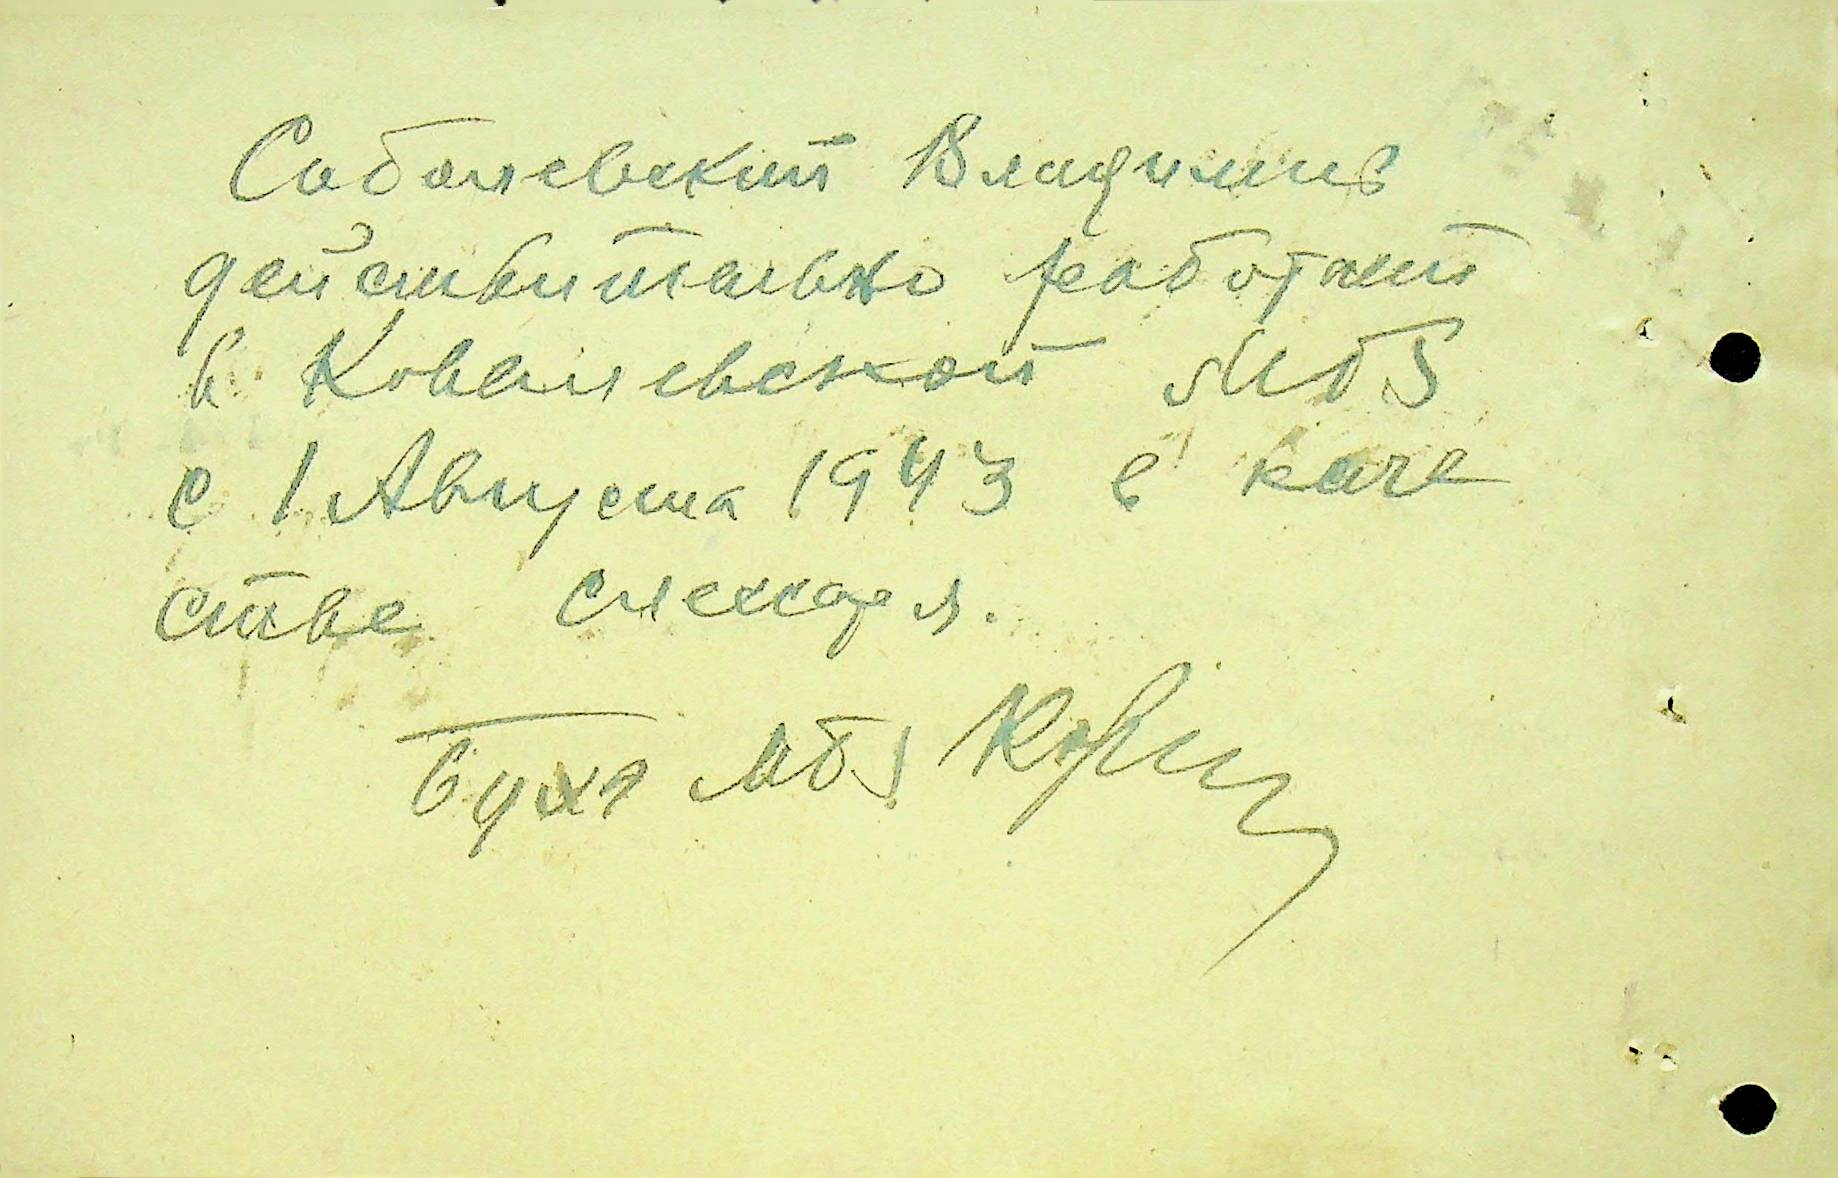 Соболевский Владимир
действительно работает
в Ковалевской МТБ
с 1 Августа 1943 в каче
стве слесаря.
Бухг МТБ